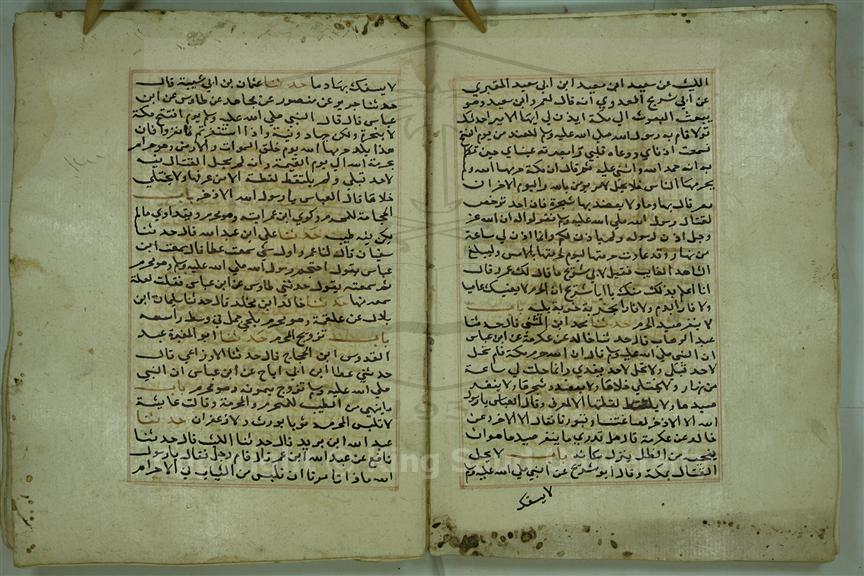 الليث عن سعيد ابن سعيد ابن ابي سعيد المقبري
عن ابي شريح العدوي أنه قال لعمرو ابن سعيد وهو
يبعث البعوث الى مكة ايذن لي ايها الامير احدثك
قولا قام به رسول الله صلى الله عليه وسلم للغد من يوم الفتح
فسمعته اذناي ووعاه قلبي وابصرته عيناي حين تكلم
به انه حمد الله واثنى عليه ثم قال ان مكة حرمها الله ولم
يحرمها الناس فلا يحل لامرئ يومن بالله واليوم الاخر ان
يسفك بها دما ولا يعضد بها شجرة فان احد ترخص
لقتال رسول الله صلى الله عليه وسلم فقولوا له ان الله عز
وجل اذن لرسوله ولم ياذن لكم وانما اذن لي ساعة
من نهار وقد عادت حرمتها اليوم كحرمتها بالامس وليبلغ
الشاهد الغايب فقيل لابي شريح ما قال لك عمرو قال
انا اعلم بذلك منك يا ابا شريح ان الحرم لا يعيذ عاصيا
ولا فارا بدم ولا فارا بخربة خربة بلية باب
لا ينفر صيد الحرم حدثنا محمد ابن المثنى قال حدثنا
عبد الوهاب قال حدثنا خالد عن عكرمة عن ابن عباس
ان النبي صلى الله عليه وسلم قال ان الله حرم مكة فلم تحل
لاحد قبلي ولا تحل لاحد بعدي وانما احلت لي ساعة
من نهار لا يختلى خلاها ولا يعضد شجرها ولا ينفر
صيدها ولا يلتقط لقطتها الا لمعرف وقال العباس يا رسول
الله الا الاذخر لصاغتنا وقبورنا فقال الا الاذخر وعن
خالد عن عكرمة قال هل تدري ما ينفر صيدها هو ان
ينحيه من الظل ينزل مكانه باب لا يحل
القتال بمكة وقال ابو شريح عن النبي صلى الله عليه وسلم
لا يسفك
لا يسفك بها دما حدثنا عثمان بن ابي شيبة قال
حدثنا جرير عن منصور عن مجاهد عن طاوس عن ابن
عباس قال قال النبي صلى الله عليه وسلم يوم افتتح مكة
لا هجرة ولكن جهاد ونية واذا استنفرتم فانفروا فان
هذا بلد حرمه الله يوم خلق السموات والارض وهو حرام
بحرمة الله الى يوم القيمة وانه لم يحل القتال فيه
لاحد قبلي ولم يلتقط لقطة الا من عرفها ولا يختلى
خلاها قال العباس يا رسول الله الا الاذخر باب
الحجامة للمحرم وكوى ابن عمر ابنه وهو محرم ويتداوى ما لم
يكن فيه طيب حدثنا علي ابن عبد الله قال حدثنا
سفيان قال قال لنا عمرو اول شي سمعت عطا قال سمعت ابن
عباس يقول احتجم رسول الله صلى الله عليه وسلم وهو محرم
ثم سمعته يقول حدثني طاوس عن ابن عباس فقلت لعله
سمعه منهما حدثنا خالد ابن مخلد قال حدثنا سليمان ابن
بلال عن علقمة وهو محرم بلحي جمل في وسط راسه
باب تزويج المحرم حدثنا ابو المغيرة عبد
القدوس ابن الحجاج قال حدثنا الاوزاعي قال
حدثني عطا ابن ابي رباح عن ابن عباس ان النبي
صلى الله عليه وسلم تزوج ميمونة وهو محرم باب
ما ينهى من الطيب للمحرم والمحرمة وقالت عايشة
لا تلبس المحرمة ثوبا بورس ولا زعفران حدثنا
عبد الله ابن يزيد قال حدثنا الليث قال حدثنا
نافع عن عبد الله ابن عمر قال قام رجل فقال يا رسول
الله ماذا تامرنا ان نلبس من الثياب في الاحرام